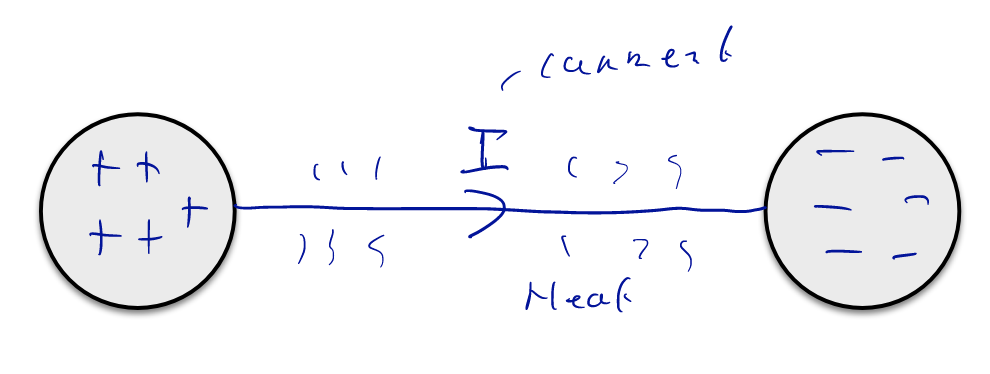 current
I
+ +
+
+ +
− −
− −
− −
Heat